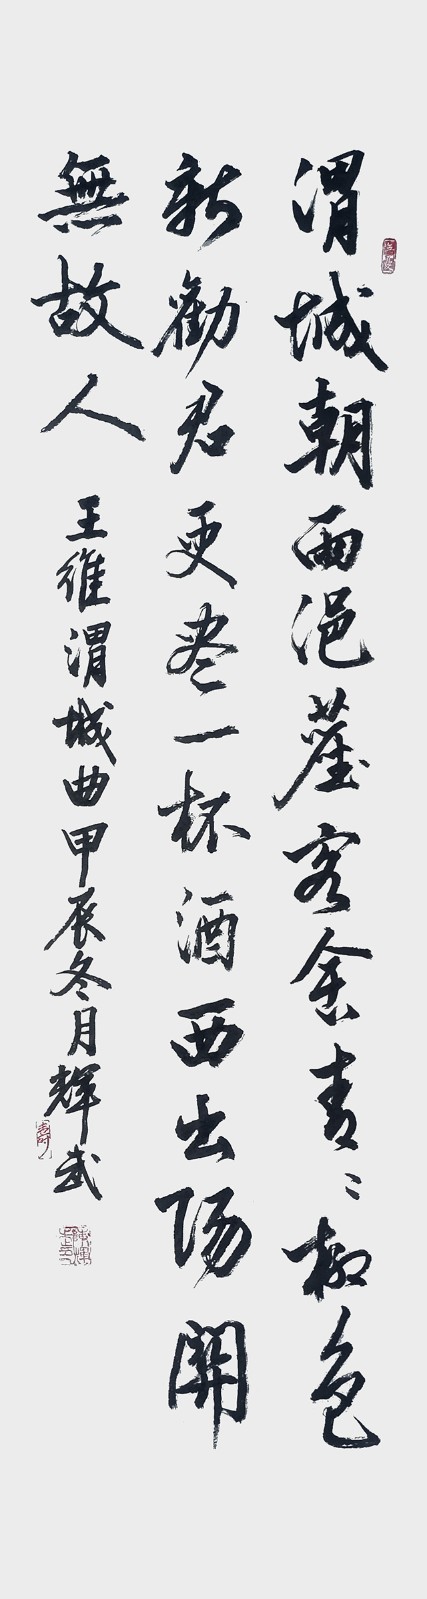 渭城朝雨浥蓙客舍青〻柳色
新勸君更盡一杯酒西出陽關
無故人
王維渭城曲甲辰冬月輝武